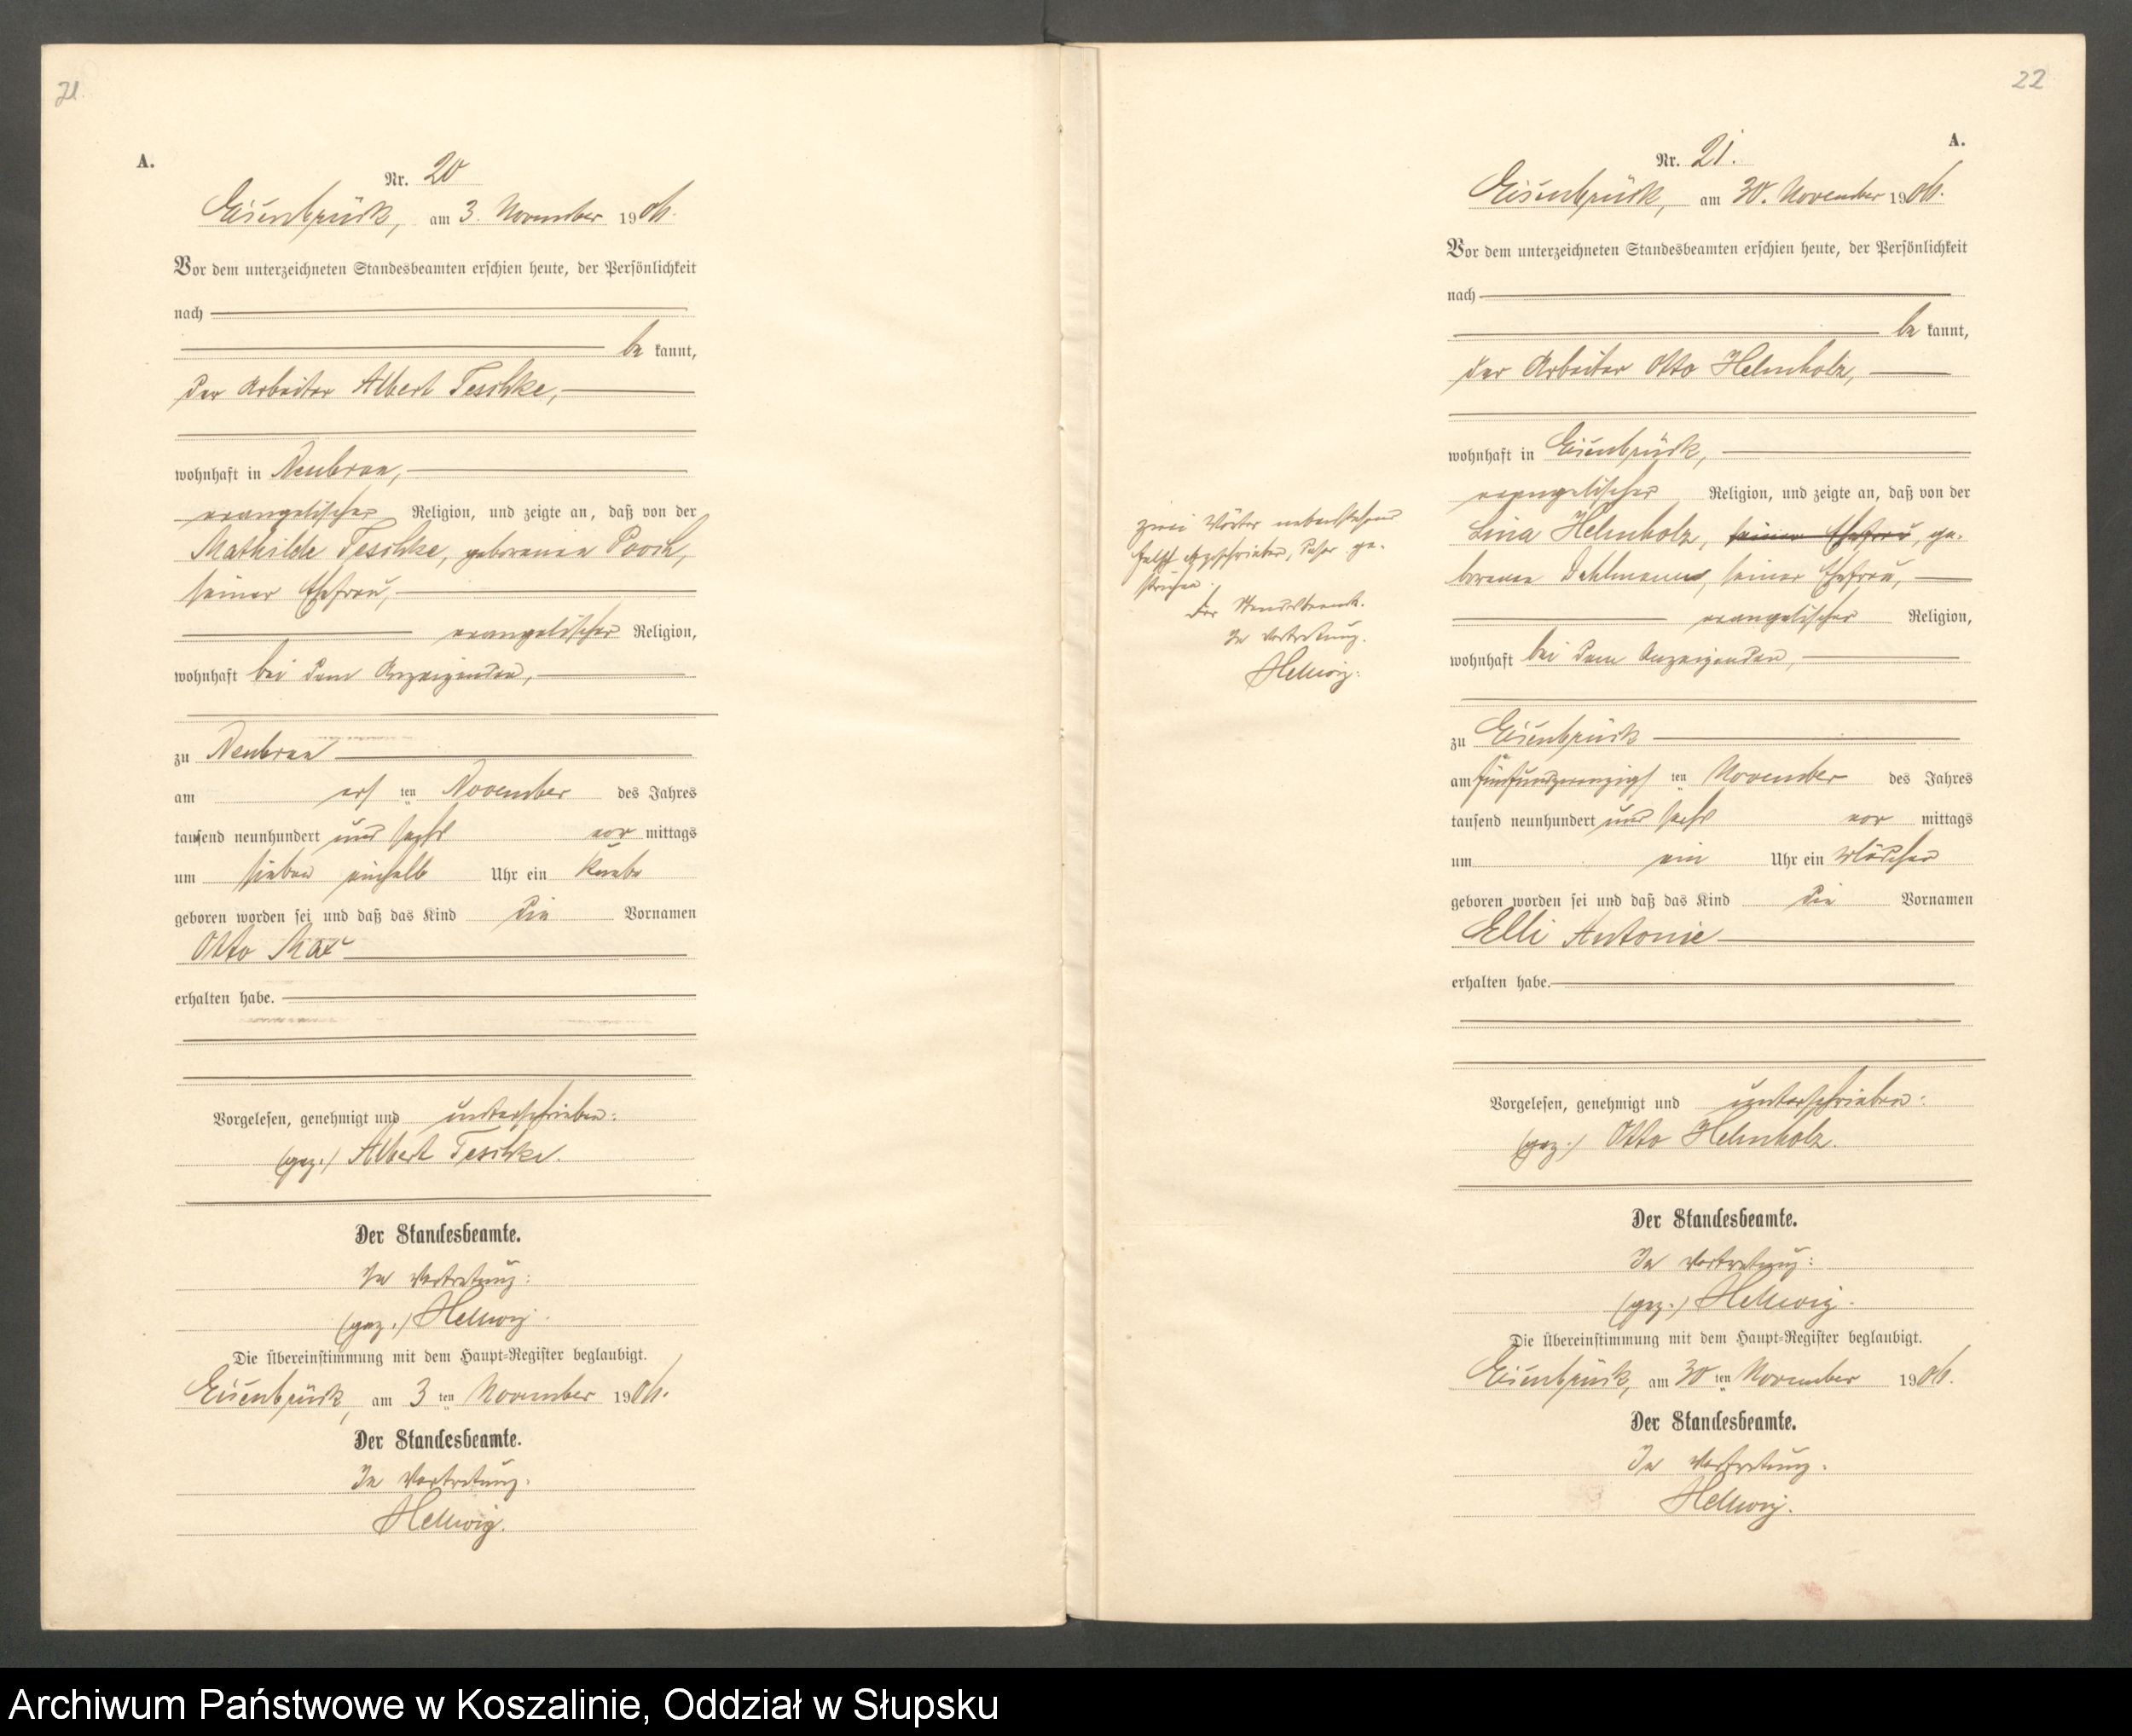 21
A.
Nr. 20
Eisenbrück, am 3. November 1906.
Vor dem unterzeichneten Standesbeamten erschien heute, der Persönlichkeit
nach
be kannt,
der Arbeiter Albert Teschke,
wohnhaft in Neubraa,
evangelischer Religion, und zeigte an, daß von der
Mathilde Teschke, geborenen Pooch,
seiner Ehefrau,
evangelischer Religion,
wohnhaft bei dem Anzeigenden,
zu Neubraa
am ersten November des Jahres
tausend neunhundert und sechs vor mittags
um sieben einhalb Uhr ein Knabe
geboren worden sei und daß das Kind die Vornamen
Otto Max
erhalten habe.
Vorgelesen, genehmigt und unterschrieben:
(gez.) Albert Teschke.
Der Standesbeamte.
In Vertretung:
(gez.) Hellwig.
Die Übereinstimmung mit dem Haupt-Register beglaubigt.
Eisenbrück, am 3ten November 1906.
Der Standesbeamte.
In Vertretung.
Hellwig.
22
A.
Nr. 21.
Eisenbrück, am 30. November 1906.
Vor dem unterzeichneten Standesbeamten erschien heute, der Persönlichkeit
nach
be kannt,
der Arbeiter Otto Helmholz,
wohnhaft in Eisenbrück,
evangelischer Religion, und zeigte an, daß von der
Lina Helmholz, seiner Ehefrau, ge-
borenen Dahlmann, seiner Ehefrau,
evangelischer Religion,
wohnhaft bei dem Anzeigenden,
zu Eisenbrück
am fünfundzwanzigsten November des Jahres
tausend neunhundert und sechs vor mittags
um ein Uhr ein Mädchen
geboren worden sei und daß das Kind die Vornamen
Elli Antonie
erhalten habe.
Vorgelesen, genehmigt und unterschrieben:
(gez.) Otto Helmholz.
Der Standesbeamte.
In Vertretung:
(gez.) Hellwig.
Die Übereinstimmung mit dem Haupt-Register beglaubigt.
Eisenbrück, am 30ten November 1906.
Der Standesbeamte.
In Vertretung.
Hellwig.
Zwei Wörter nebenstehend
falsch geschrieben, daher ge-
strichen.
Der Standesbeamte.
In Vertretung.
Hellwig.
Archiwum Państwowe w Koszalinie, Oddział w Słupsku